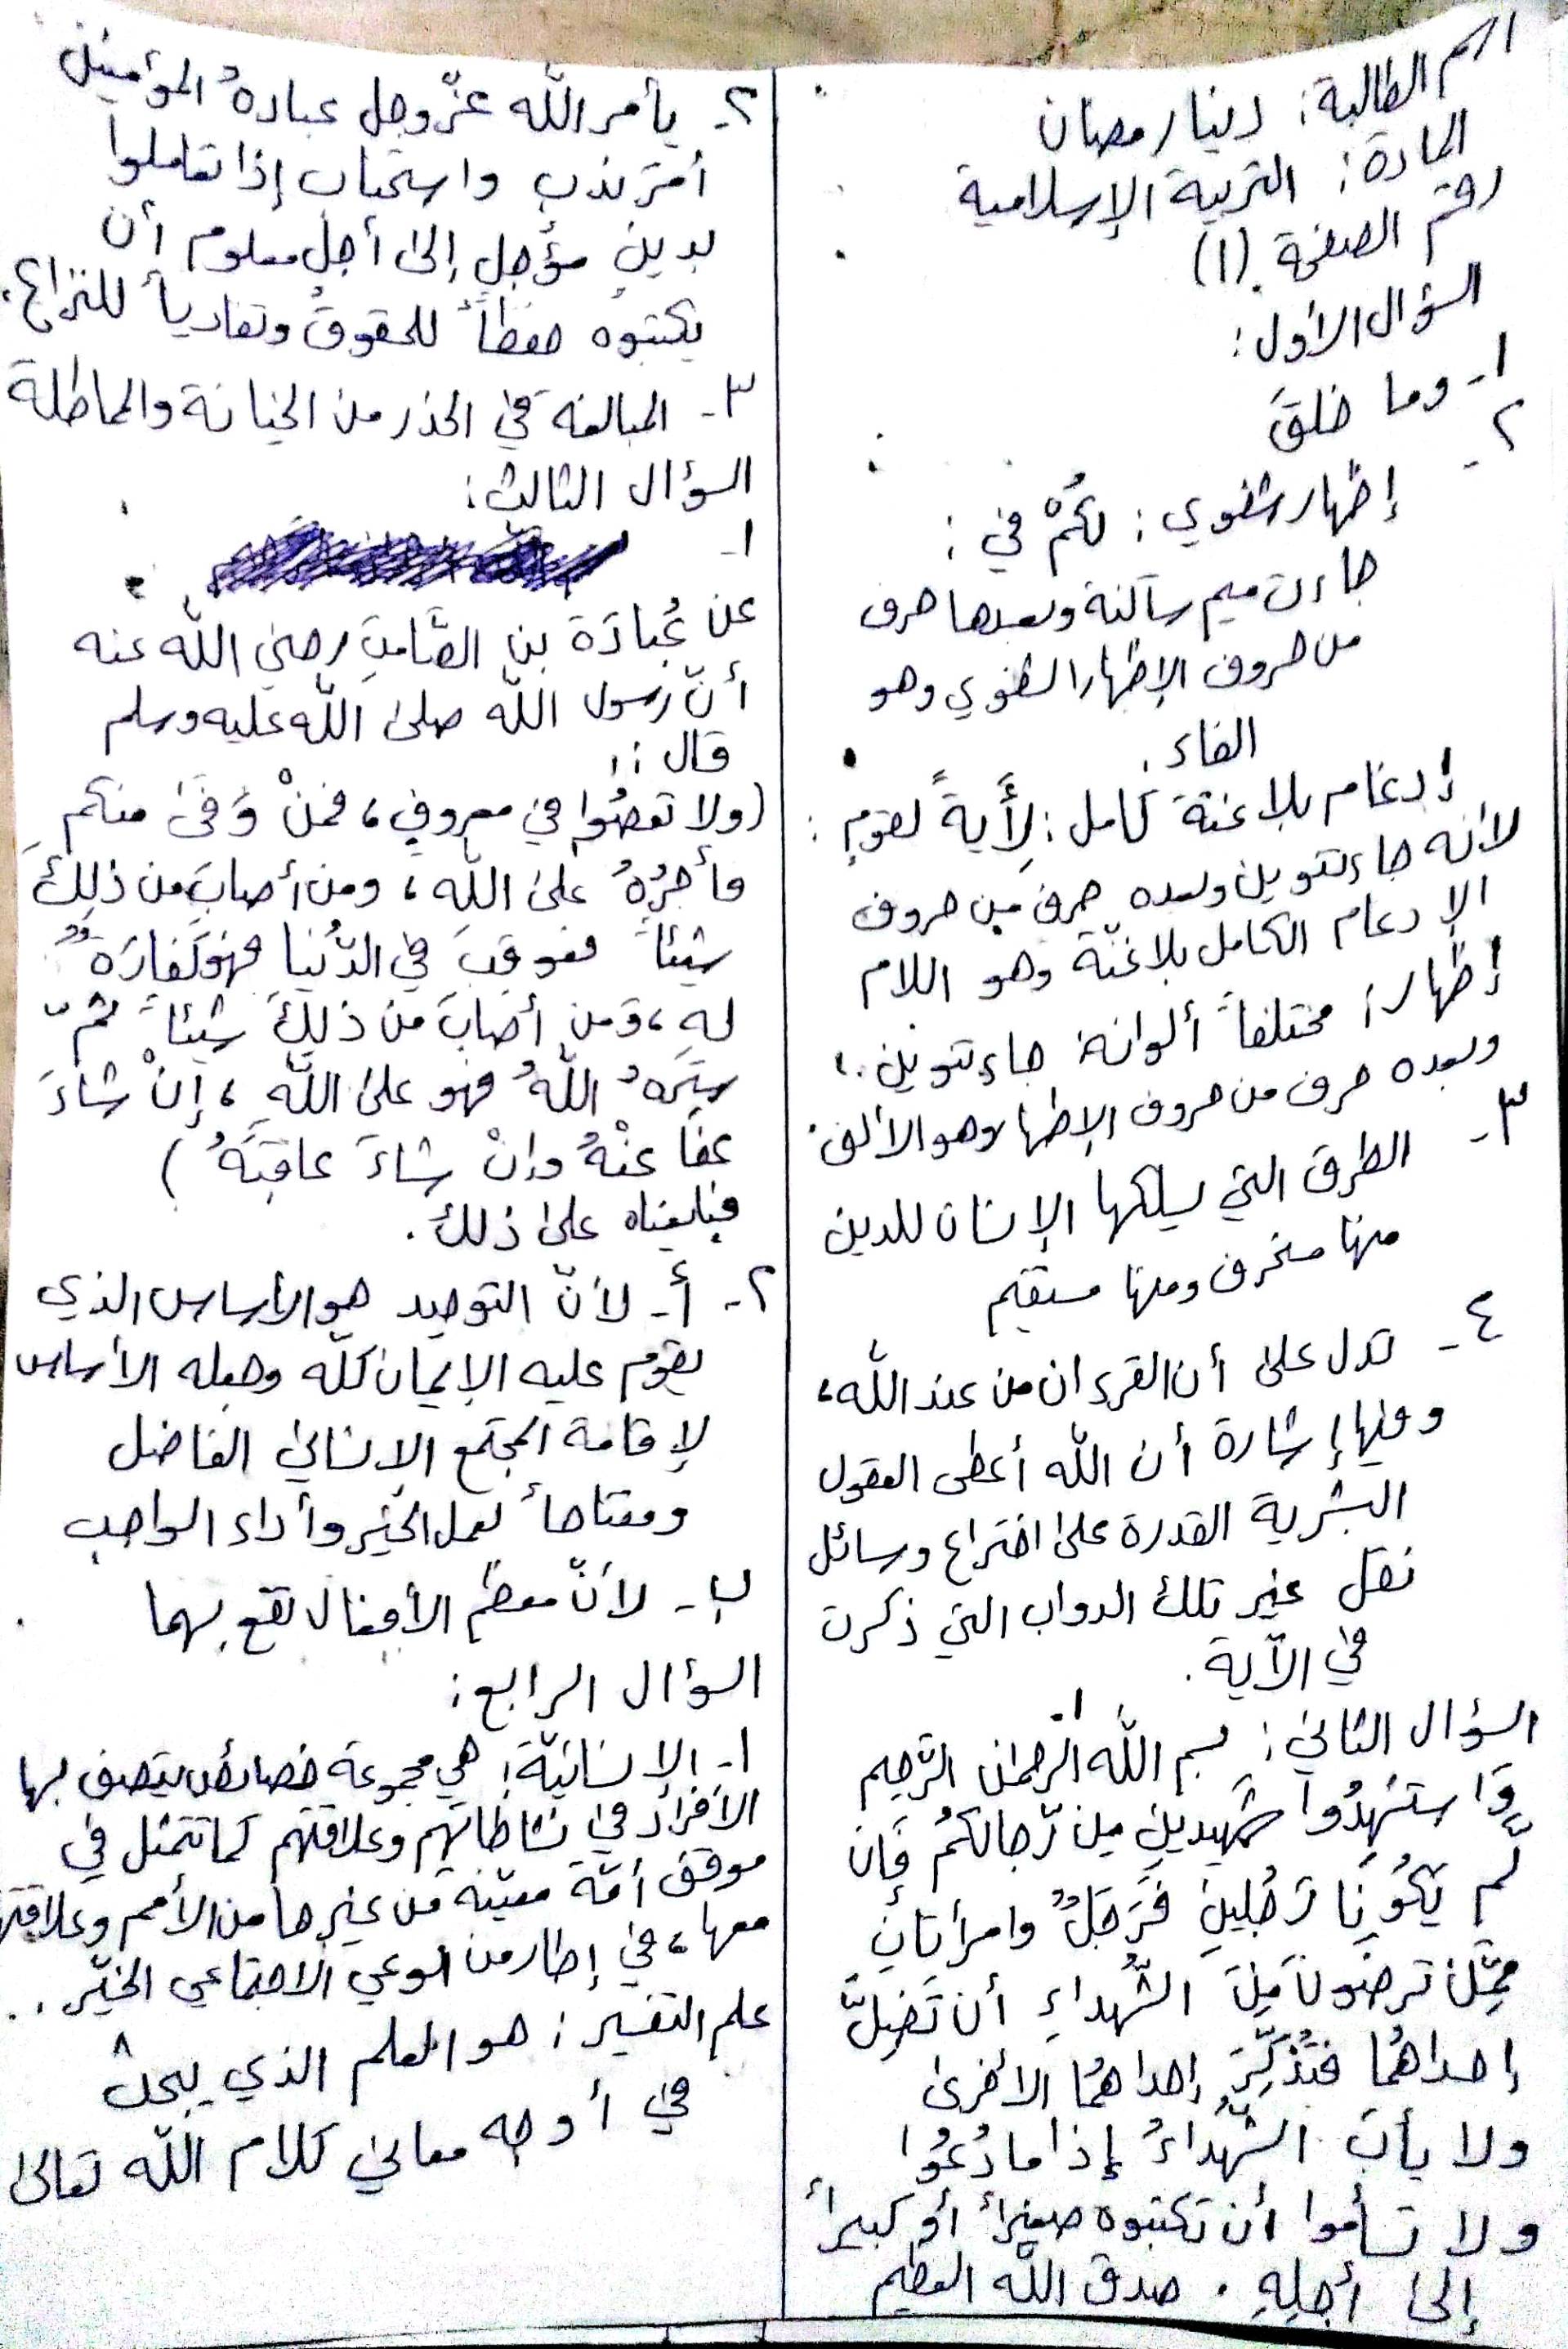 اسم الطالبة: دينا رمضان
المادة: التربية الإسلامية
رقم الصفحة (١)
السؤال الأول:
١- وما خلقَ
٢-
إظهار شفوي: لكُمْ في:
جاءت ميم ساكنة وبعدها حرف
من حروف الإظهار الشفوي وهو
الفاء.
إدغام بلا غنّة كامل: لِأَيةً لقومٍ:
لأنه جاء تنوين وبعده حرف من حروف
الإدغام الكامل بلا غنّة وهو اللام
إظهار: مختلفاً ألوانه جاء تنوين
وبعده حرف من حروف الإظهار وهو الألف.
٣- الطرق التي يسلكها الإنسان للدين
منها منحرف ومنها مستقيم
٤- تدل على أن القرءان من عند الله،
وفيها إشارة أن الله أعطى العقول
البشرية القدرة على اختراع وسائل
نقل غير تلك الدواب التي ذكرت
في الآية.
السؤال الثاني: بسم الله الرحمان الرّحيم
وَاستشهِدُوا شهيدينِ من رّجالكُم فَإن
لّم يَكُونَا رَجُلينِ فَرَجلٌ وامرأتانِ
ممّن ترضونَ مِنَ الشّهداءِ أن تَضِلَّ
إحداهُمَا فتُذكِّرَ إحداهُمَا الأخرى
ولا يأبَ الشّهداءُ إذا ما دُعُوا
ولا تسأموا أن تكتبوه صغيراً أو كبيراً
إلى أجلِهِ. صدق الله العظيم
٢- يأمر الله عزّ وجل عبادهُ المؤمنين
أمر ندب واستحباب إذا تعاملوا
بدينٍ مؤجلٍ إلى أجلٍ معلوم أن
يكتبوه حفظاً للحقوق وتفادياً للنزاع.
٣- المبالغة في الحذر من الخيانة والمماطلة
السؤال الثالث:
١-
عن عُبادَة بنِ الصّامتِ رضي الله عنه
أنّ رسول الله صلى الله عليه وسلم
قال:
(ولا تعصُوا في معروفٍ، فمنْ وَفَىٰ منكم
فأجرُهُ على اللهِ، ومن أصابَ من ذلِكَ
شيئاً فعوقِبَ في الدُّنيا فهو كَفارَةٌ
لهِ، وَمن أصَابَ من ذلِكَ شيئاً ثمّ
سترهُ اللهُ فهو على اللهِ، إنْ شاءَ
عفا عنْهُ وإنْ شاءَ عاقبَهُ)
فبايعناه على ذلك.
٢- أ- لأنّ التوحيد هو الأساس الذي
يقوم عليه الإيمان كلّه وجعله الأساس
لإقامة المجتمع الإنساني الفاضل
ومفتاحاً لعمل الخير وأداء الواجب
ب- لأنّ معظم الأفعال تقع بهما
السؤال الرابع:
١- الإنسانيّة: هي مجموعة خصائص يتصف بها
الأفراد في نشاطاتهم وعلاقتهم كما تتمثل في
موقف أمّة معيّنة من غيرها من الأمم وعلاقتها
معها، في إطار من الوعي الاجتماعي الخيّر.
علم التفسير: هو العلم الذي يبحث
في أوجه معاني كلام الله تعالى